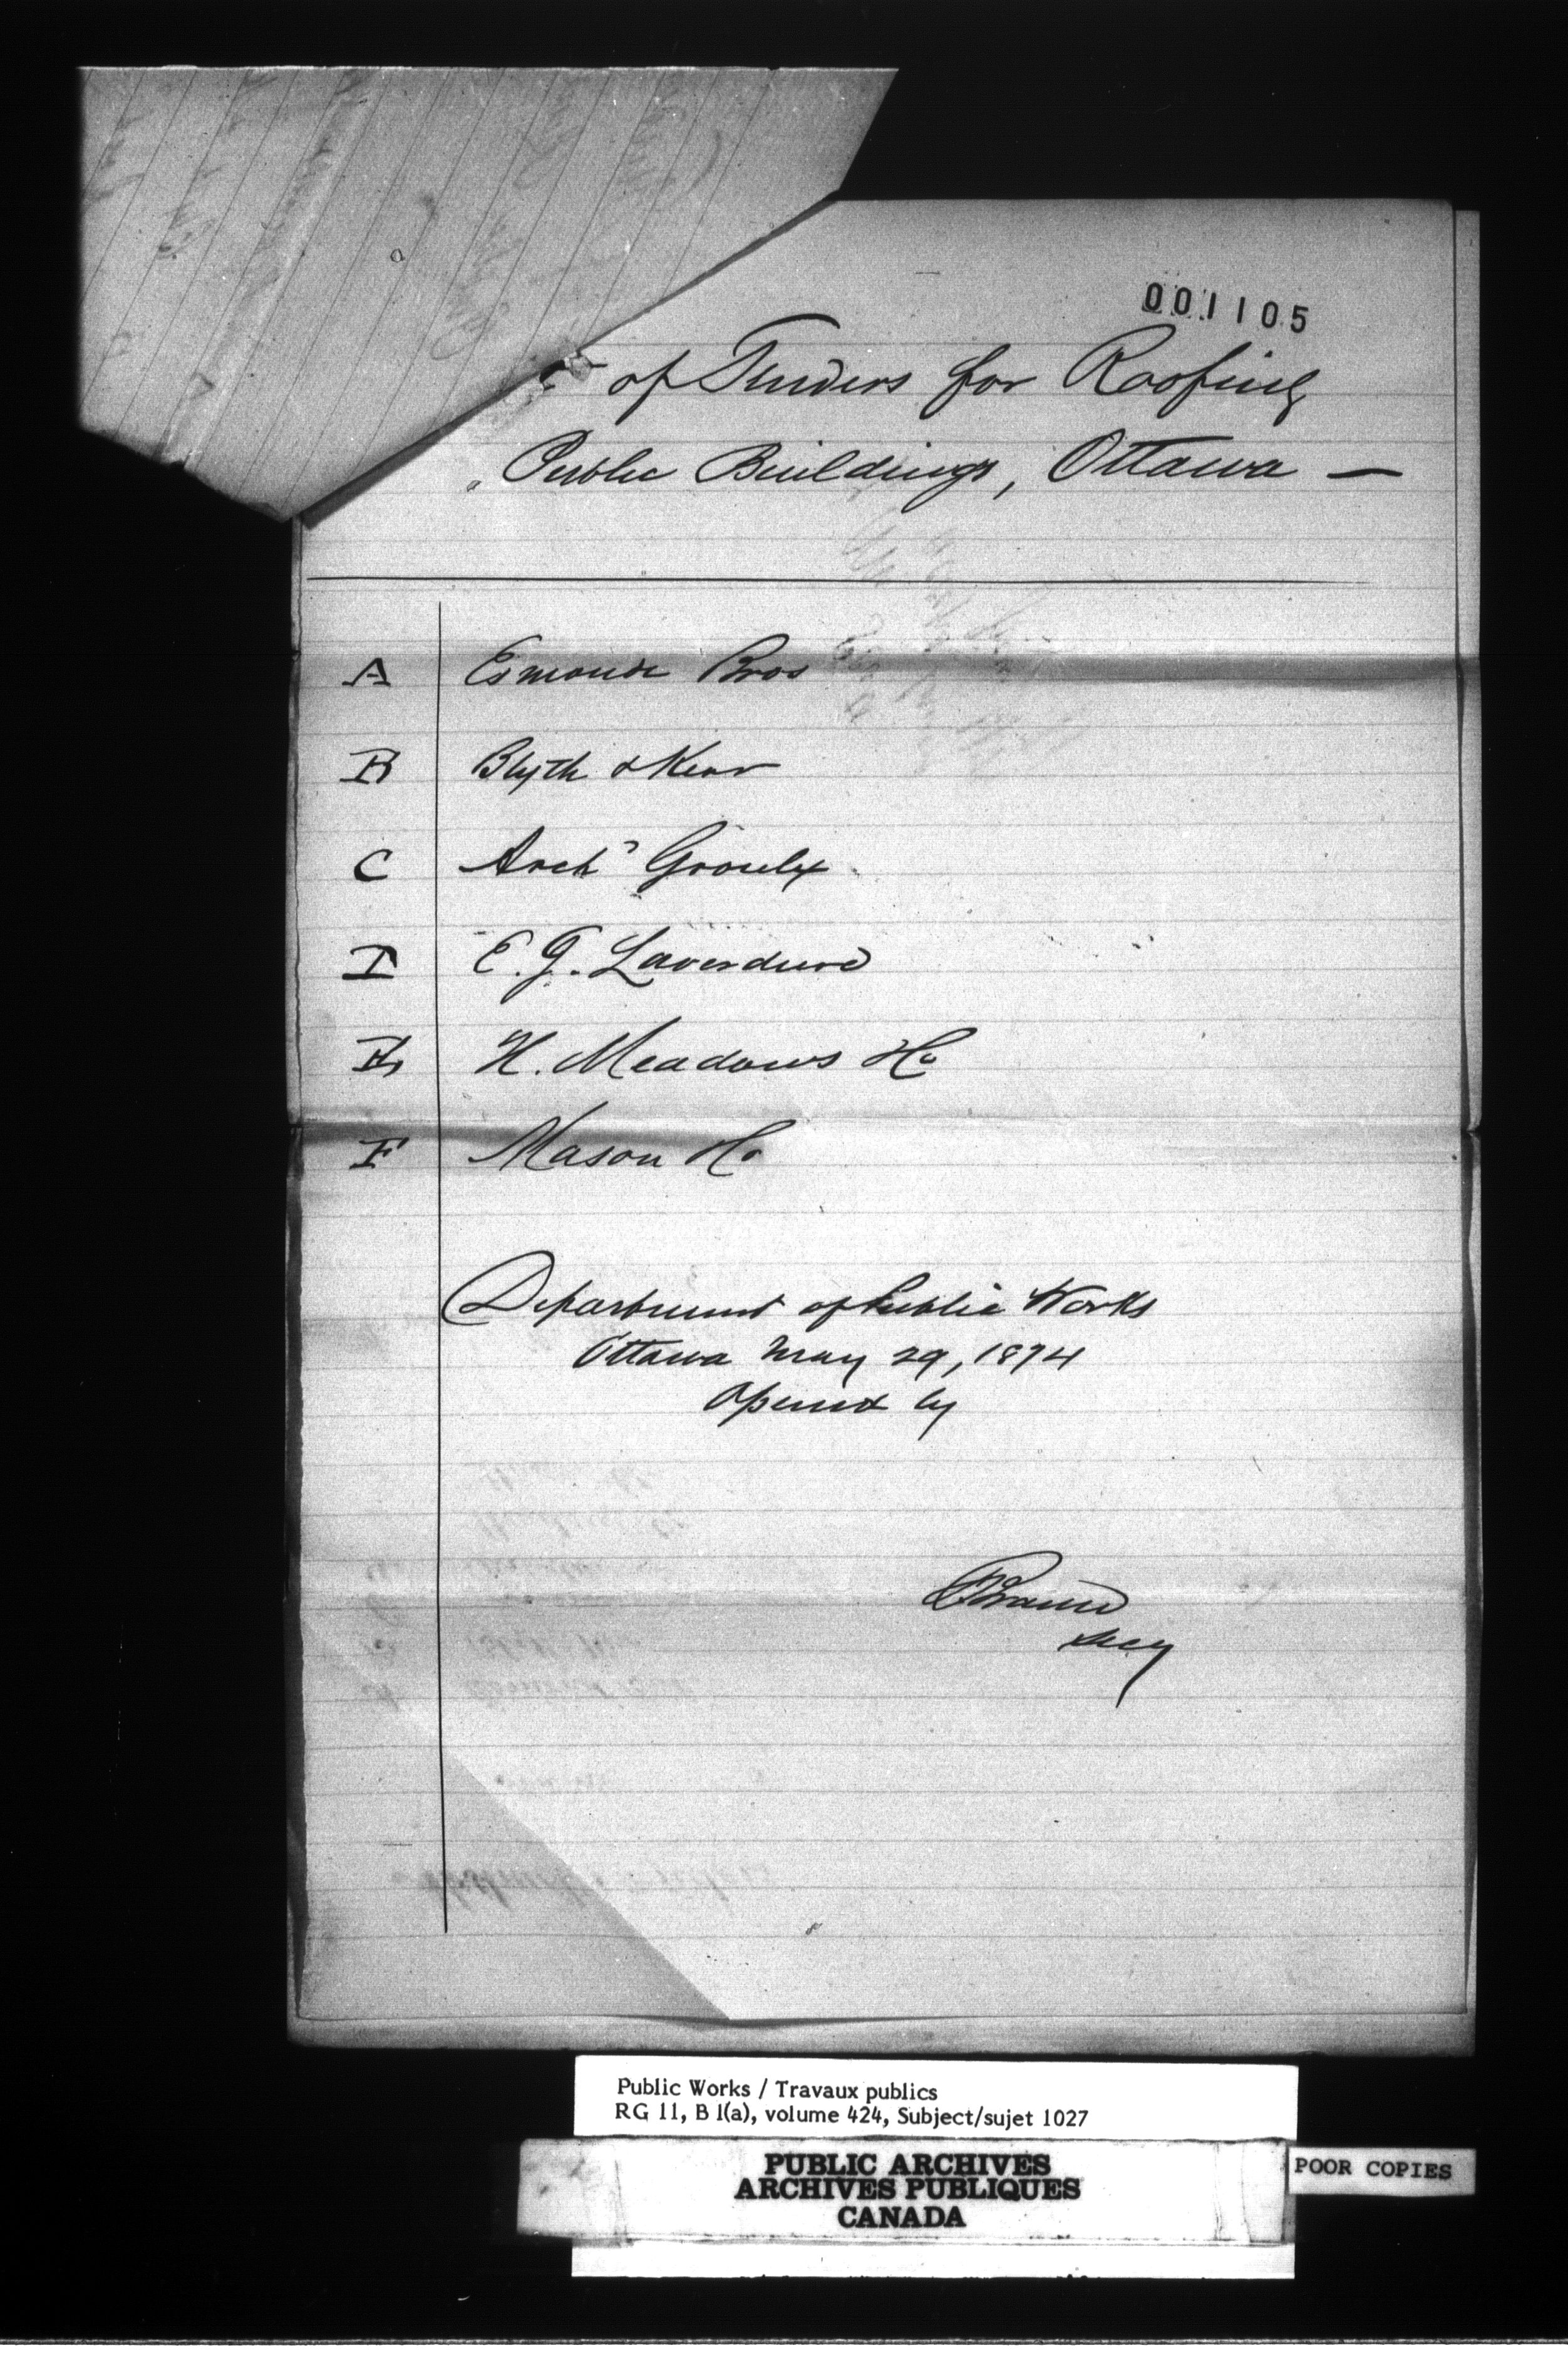 001105
of Tenders for Roofing
Public Buildings, Ottawa —
A Esmonde Bros
B Blyth & Kerr
C Arch^d Groulx
D E. G. Laverdure
E H. Meadows & Co
F Mason & Co
Department of Public Works
Ottawa May 29, 1874
Opened by
F Braun
Secy
Public Works / Travaux publics
RG 11, B 1(a), volume 424, Subject/sujet 1027
PUBLIC ARCHIVES
ARCHIVES PUBLIQUES
CANADA
POOR COPIES